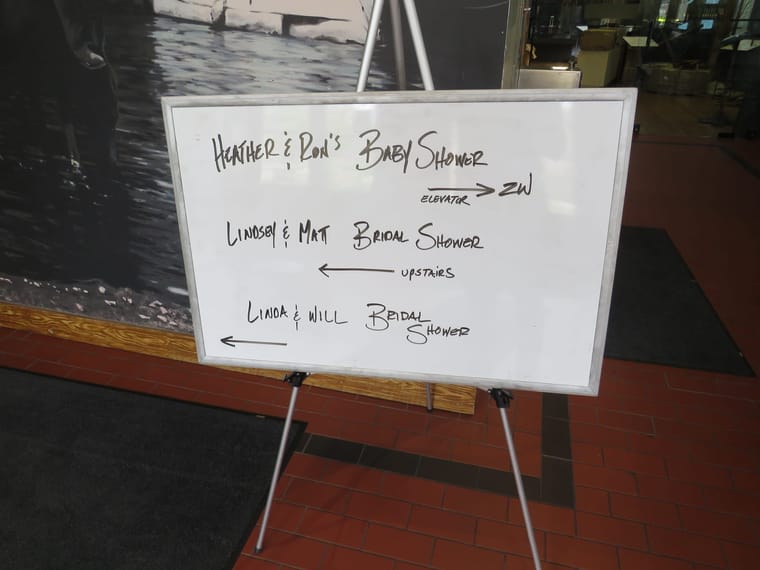 HEATHER & RON'S BABY SHOWER
ELEVATOR → 2W
LINDSEY & MATT BRIDAL SHOWER
← UPSTAIRS
LINDA & WILL BRIDAL
SHOWER
←